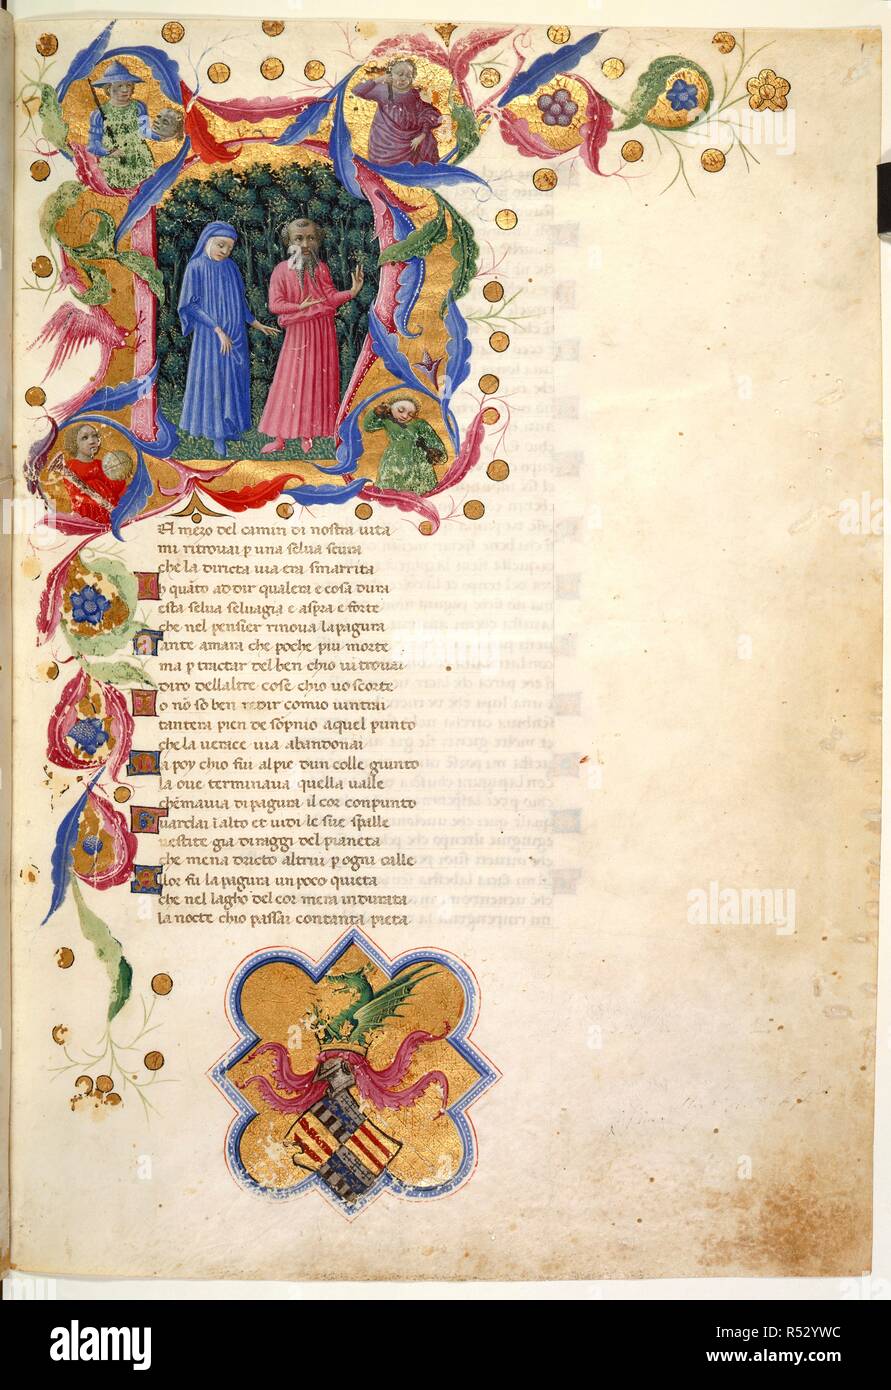 El mezo del camin di nostra vita
mi ritrovai p una selva scura
che la diricta via era smarrita
h quāto ad dir qualera e cosa dura
esta selva selvagia e aspra e forte
che nel pensier rinova la pagura
ante amara che poche piu morte
ma p tractar del ben chio vi trovai
diro dellaltre cose chio vo scorte
o nō so ben redir comio vintrai
tantera pien de sōpnio aquel punto
che la verace via abandonai
a poy chio fui al pie dun colle giunto
la ove terminava quella valle
chemavia di pagura il cor conpunto
uardai ī alto et vidi le sue spalle
vestite gia di raggi del pianeta
che mena dricto altrui p ogni calle
llor fu la pagura un poco quieta
che nel lagho del cor mera indurata
la nocte chio passai contanta pieta
alamy
Image ID: R52YWC
www.alamy.com